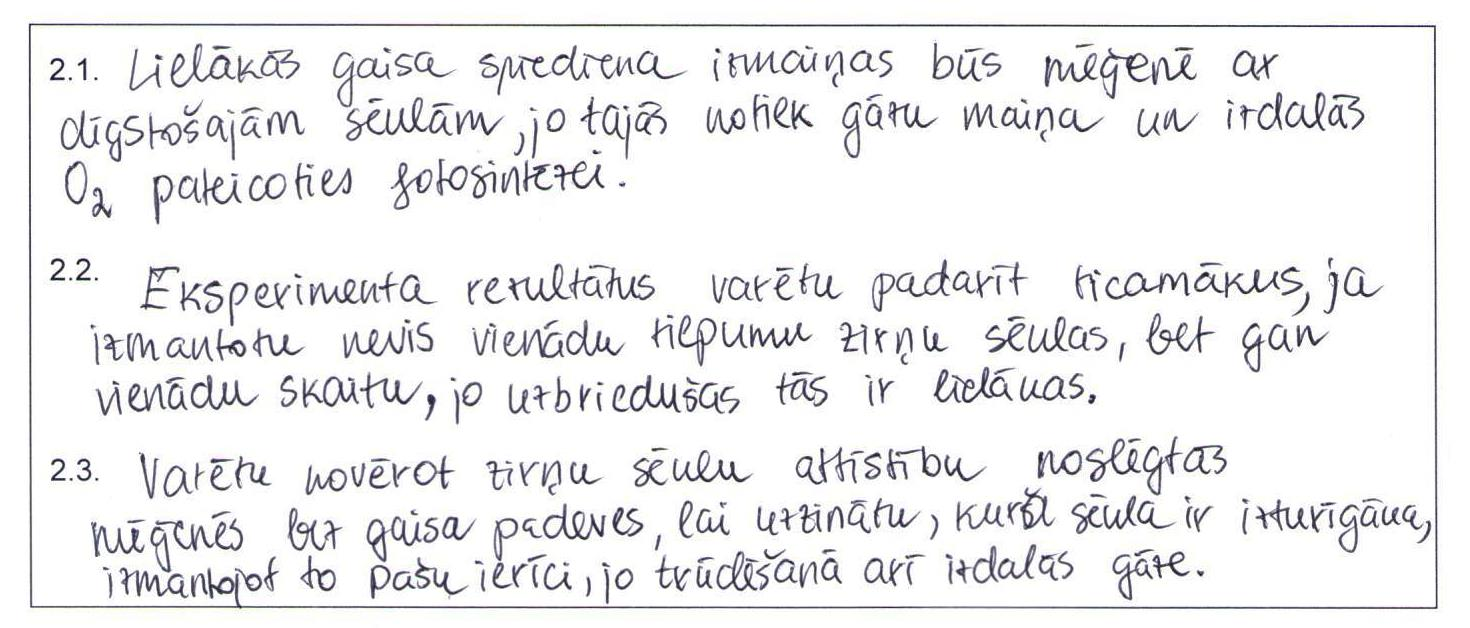 2.1. Lielākās gaisa spiediena izmaiņas būs mēģenē ar
dīgstošajām sēklām, jo tajās notiek gāzu maiņa un izdalās
O₂ pateicoties fotosintēzei.
2.2. Eksperimenta rezultātus varētu padarīt ticamākus, ja
izmantotu nevis vienādu tilpumu zirņu sēklas, bet gan
vienādu skaitu, jo uzbriedušas tās ir lielākas.
2.3. Varētu novērot zirņu sēklu attīstību noslēgtās
mēģenēs bez gaisa padeves, lai uzzinātu, kura sēkla ir izturīgāka,
izmantojot to pašu ierīci, jo trūdēšanā arī izdalās gāze.